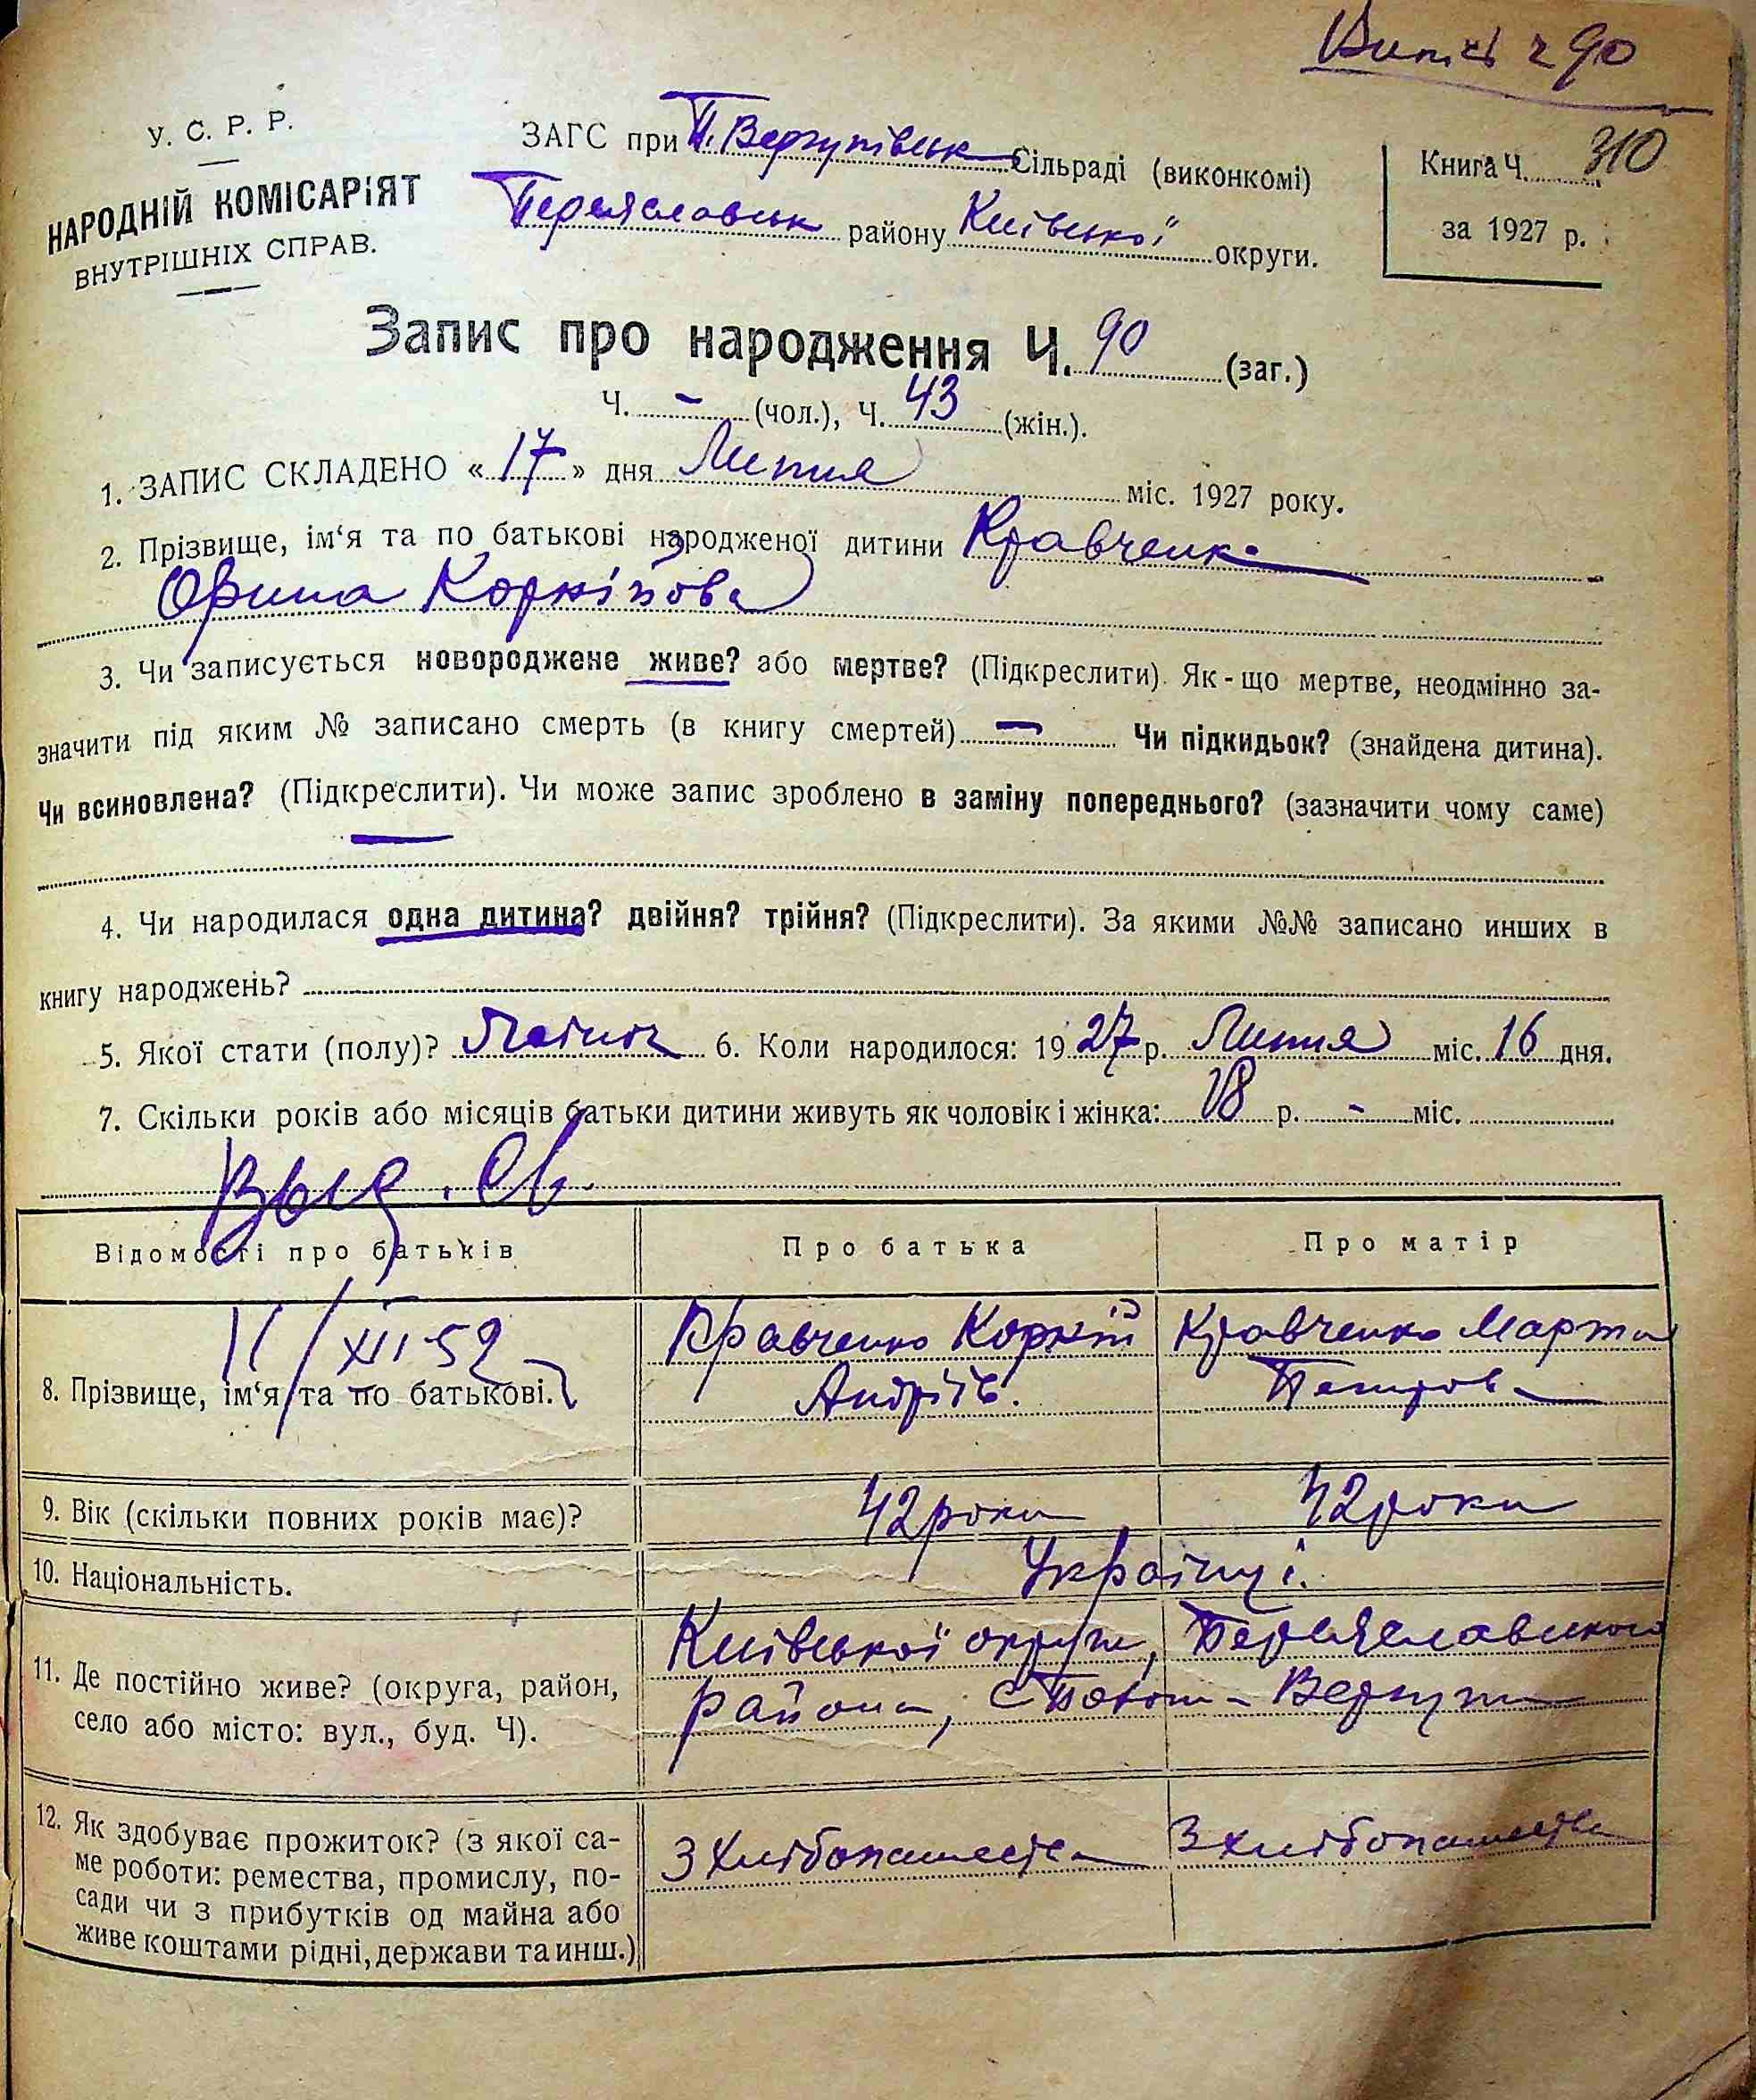 Випис ч 90
У. С. Р. Р.
НАРОДНІЙ КОМІСАРІЯТ
ВНУТРІШНІХ СПРАВ.
ЗАГС при П. Вергунівськ Сільраді (виконкомі)
Переяславськ району Київської округи.
Книга Ч. 310
за 1927 р.
Запис про народження Ч. 90 (заг.)
Ч. – (чол.), Ч. 43 (жін.).
1. ЗАПИС СКЛАДЕНО «17» дня Липня міс. 1927 року.
2. Прізвище, ім‘я та по батькові народженої дитини Кравченко
Орина Корніївна
3. Чи записується новороджене живе? або мертве? (Підкреслити). Як-що мертве, неодмінно за-
значити під яким № записано смерть (в книгу смертей) — Чи підкидьок? (знайдена дитина).
Чи всиновлена? (Підкреслити). Чи може запис зроблено в заміну попереднього? (зазначити чому саме)
—
4. Чи народилася одна дитина? двійня? трійня? (Підкреслити). За якими №№ записано инших в
книгу народжень?
5. Якої стати (полу)? 6. Коли народилося: 1927 р. Липня міс. 16 дня.
7. Скільки років або місяців батьки дитини живуть як чоловік і жінка: 18 р. - міс.
Выд. св.
Відомості про батьків
Про батька
Про матір
/XII 52
8. Прізвище, ім‘я та по батькові.
Кравченко Корній
Андріїв.
Кравченко Марта
Петров
9. Вік (скільки повних років має)?
42 роки
42 роки
10. Національність.
Українці.
11. Де постійно живе? (округа, район,
село або місто: вул., буд. Ч).
Київської округи, Переяславського
района, с
12. Як здобуває прожиток? (з якої са-
ме роботи: ремества, промислу, по-
сади чи з прибутків од майна або
живе коштами рідні, держави та инш.)
З хлібопашества
З хлібопашества